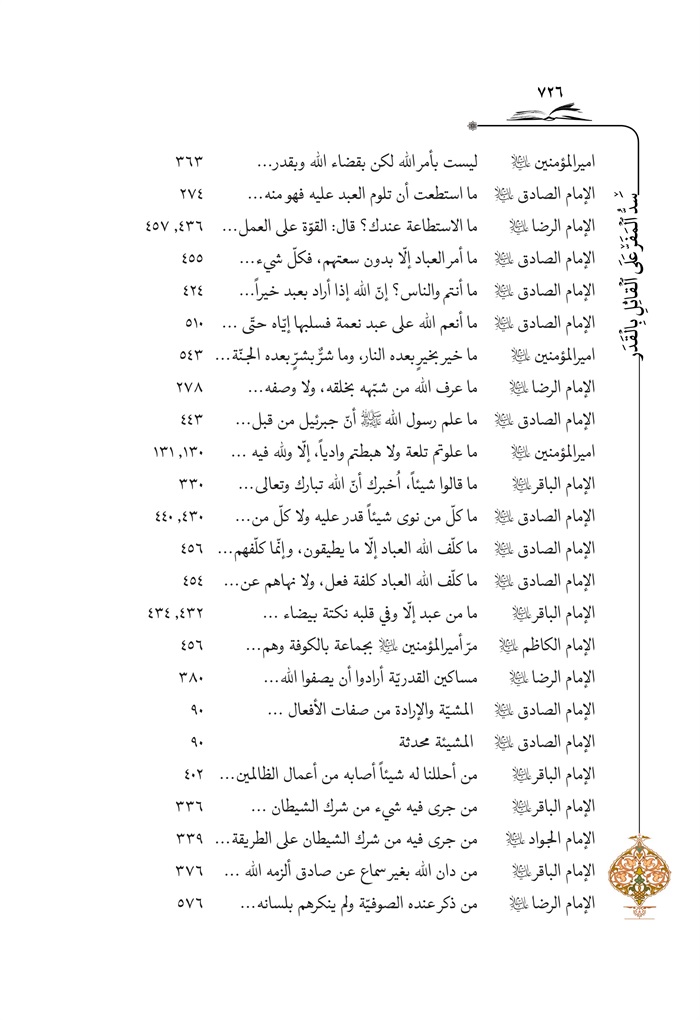 ٧٢٦
سدُّ المَفَرِّ عَلَى الْقائِلِ بِالْقَدَر
اميرالمؤمنين ﵇ ليست بأمر الله لكن بقضاء الله وبقدر... ٣٦٣
الإمام الصادق ﵇ ما استطعت أن تلوم العبد عليه فهو منه... ٢٧٤
الإمام الرضا ﵇ ما الاستطاعة عندك؟ قال: القوّة على العمل... ٤٣٦, ٤٥٧
الإمام الصادق ﵇ ما أمر العباد إلّا بدون سعتهم، فكلّ شيء... ٤٥٥
الإمام الصادق ﵇ ما أنتم والناس؟ إنّ الله إذا أراد بعبد خيراً... ٤٢٤
الإمام الصادق ﵇ ما أنعم الله على عبد نعمة فسلبها إيّاه حتّى ... ٥١٠
اميرالمؤمنين ﵇ ما خير بخيرٍ بعده النار، وما شرٌّ بشرّ بعده الجنّة... ٥٤٣
الإمام الرضا ﵇ ما عرف الله من شبّهه بخلقه، ولا وصفه... ٢٧٨
الإمام الصادق ﵇ ما علم رسول الله ﷺ أنّ جبرئيل من قبل... ٤٤٣
اميرالمؤمنين ﵇ ما علوتم تلعة ولا هبطتم وادياً، إلّا ولله فيه ... ١٣٠, ١٣١
الإمام الباقر ﵇ ما قالوا شيئاً، اُخبرك أنّ الله تبارك وتعالى... ٣٣٠
الإمام الصادق ﵇ ما كلّ من نوى شيئاً قدر عليه ولا كلّ من... ٤٣٠, ٤٤٠
الإمام الصادق ﵇ ما كلّف الله العباد إلّا ما يطيقون، وإنّما كلّفهم... ٤٥٦
الإمام الصادق ﵇ ما كلّف الله العباد كلفة فعل، ولا نهاهم عن... ٤٥٤
الإمام الباقر ﵇ ما من عبد إلّا وفي قلبه نكتة بيضاء ... ٤٣٢, ٤٣٤
الإمام الكاظم ﵇ مرّ أميرالمؤمنين ﵇ بجماعة بالكوفة وهم... ٤٥٦
الإمام الرضا ﵇ مساكين القدريّة أرادوا أن يصفوا الله... ٣٨٠
الإمام الصادق ﵇ المشيّة والإرادة من صفات الأفعال ... ٩٠
الإمام الصادق ﵇ المشيئة محدثة ٩٠
الإمام الباقر ﵇ من أحللنا له شيئاً أصابه من أعمال الظالمين... ٤٠٢
الإمام الباقر ﵇ من جرى فيه شيء من شرك الشيطان ... ٣٣٦
الإمام الجواد ﵇ من جرى فيه من شرك الشيطان على الطريقة... ٣٣٩
الإمام الباقر ﵇ من دان الله بغير سماع عن صادق ألزمه الله ... ٣٧٦
الإمام الرضا ﵇ من ذكر عنده الصوفيّة ولم ينكرهم بلسانه... ٥٧٦